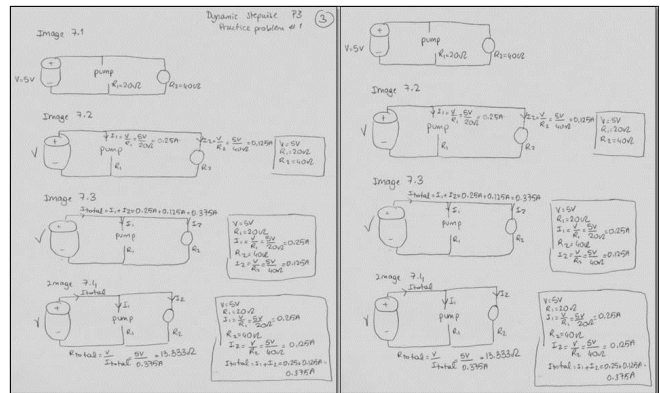 Dynamic Stepwise P3
Practice problem #1
3
Image 7.1
V=5V
pump
R₁=20Ω
R₂=40Ω
Image 7.2
V
I₁=V/R₁=5V/20Ω=0.25A
I₂=V/R₂=5V/40Ω=0.125A
pump
R₁
R₂
V=5V
R₁=20Ω
R₂=40Ω
Image 7.3
Itotal=I₁+I₂=0.25A+0.125A=0.375A
V
I₁
I₂
pump
R₁
R₂
V=5V
R₁=20Ω
I₁=V/R₁=5V/20Ω=0.25A
R₂=40Ω
I₂=V/R₂=5V/40Ω=0.125A
Image 7.4
Itotal
V
I₁
I₂
pump
R₁
R₂
Rtotal=V/Itotal=5V/0.375A=13.333Ω
V=5V
R₁=20Ω
I₁=V/R₁=5V/20Ω=0.25A
R₂=40Ω
I₂=V/R₂=5V/40Ω=0.125A
Itotal=I₁+I₂=0.25+0.125A=
0.375A
V=5V
pump
R₁=20Ω
R₂=40Ω
Image 7.2
V
I₁=V/R₁=5V/20Ω=0.25A
I₂=V/R₂=5V/40Ω=0.125A
pump
R₁
R₂
V=5V
R₁=20Ω
R₂=40Ω
Image 7.3
Itotal=I₁+I₂=0.25A+0.125A=0.375A
V
I₁
I₂
pump
R₁
R₂
V=5V
R₁=20Ω
I₁=V/R₁=5V/20Ω=0.25A
R₂=40Ω
I₂=V/R₂=5V/40Ω=0.125A
Image 7.4
Itotal
V
I₁
I₂
pump
R₁
R₂
Rtotal=V/Itotal=5V/0.375A=13.333Ω
V=5V
R₁=20Ω
I₁=V/R₁=5V/20Ω=0.25A
R₂=40Ω
I₂=V/R₂=5V/40Ω=0.125A
Itotal=I₁+I₂=0.25+0.125A=
0.375A